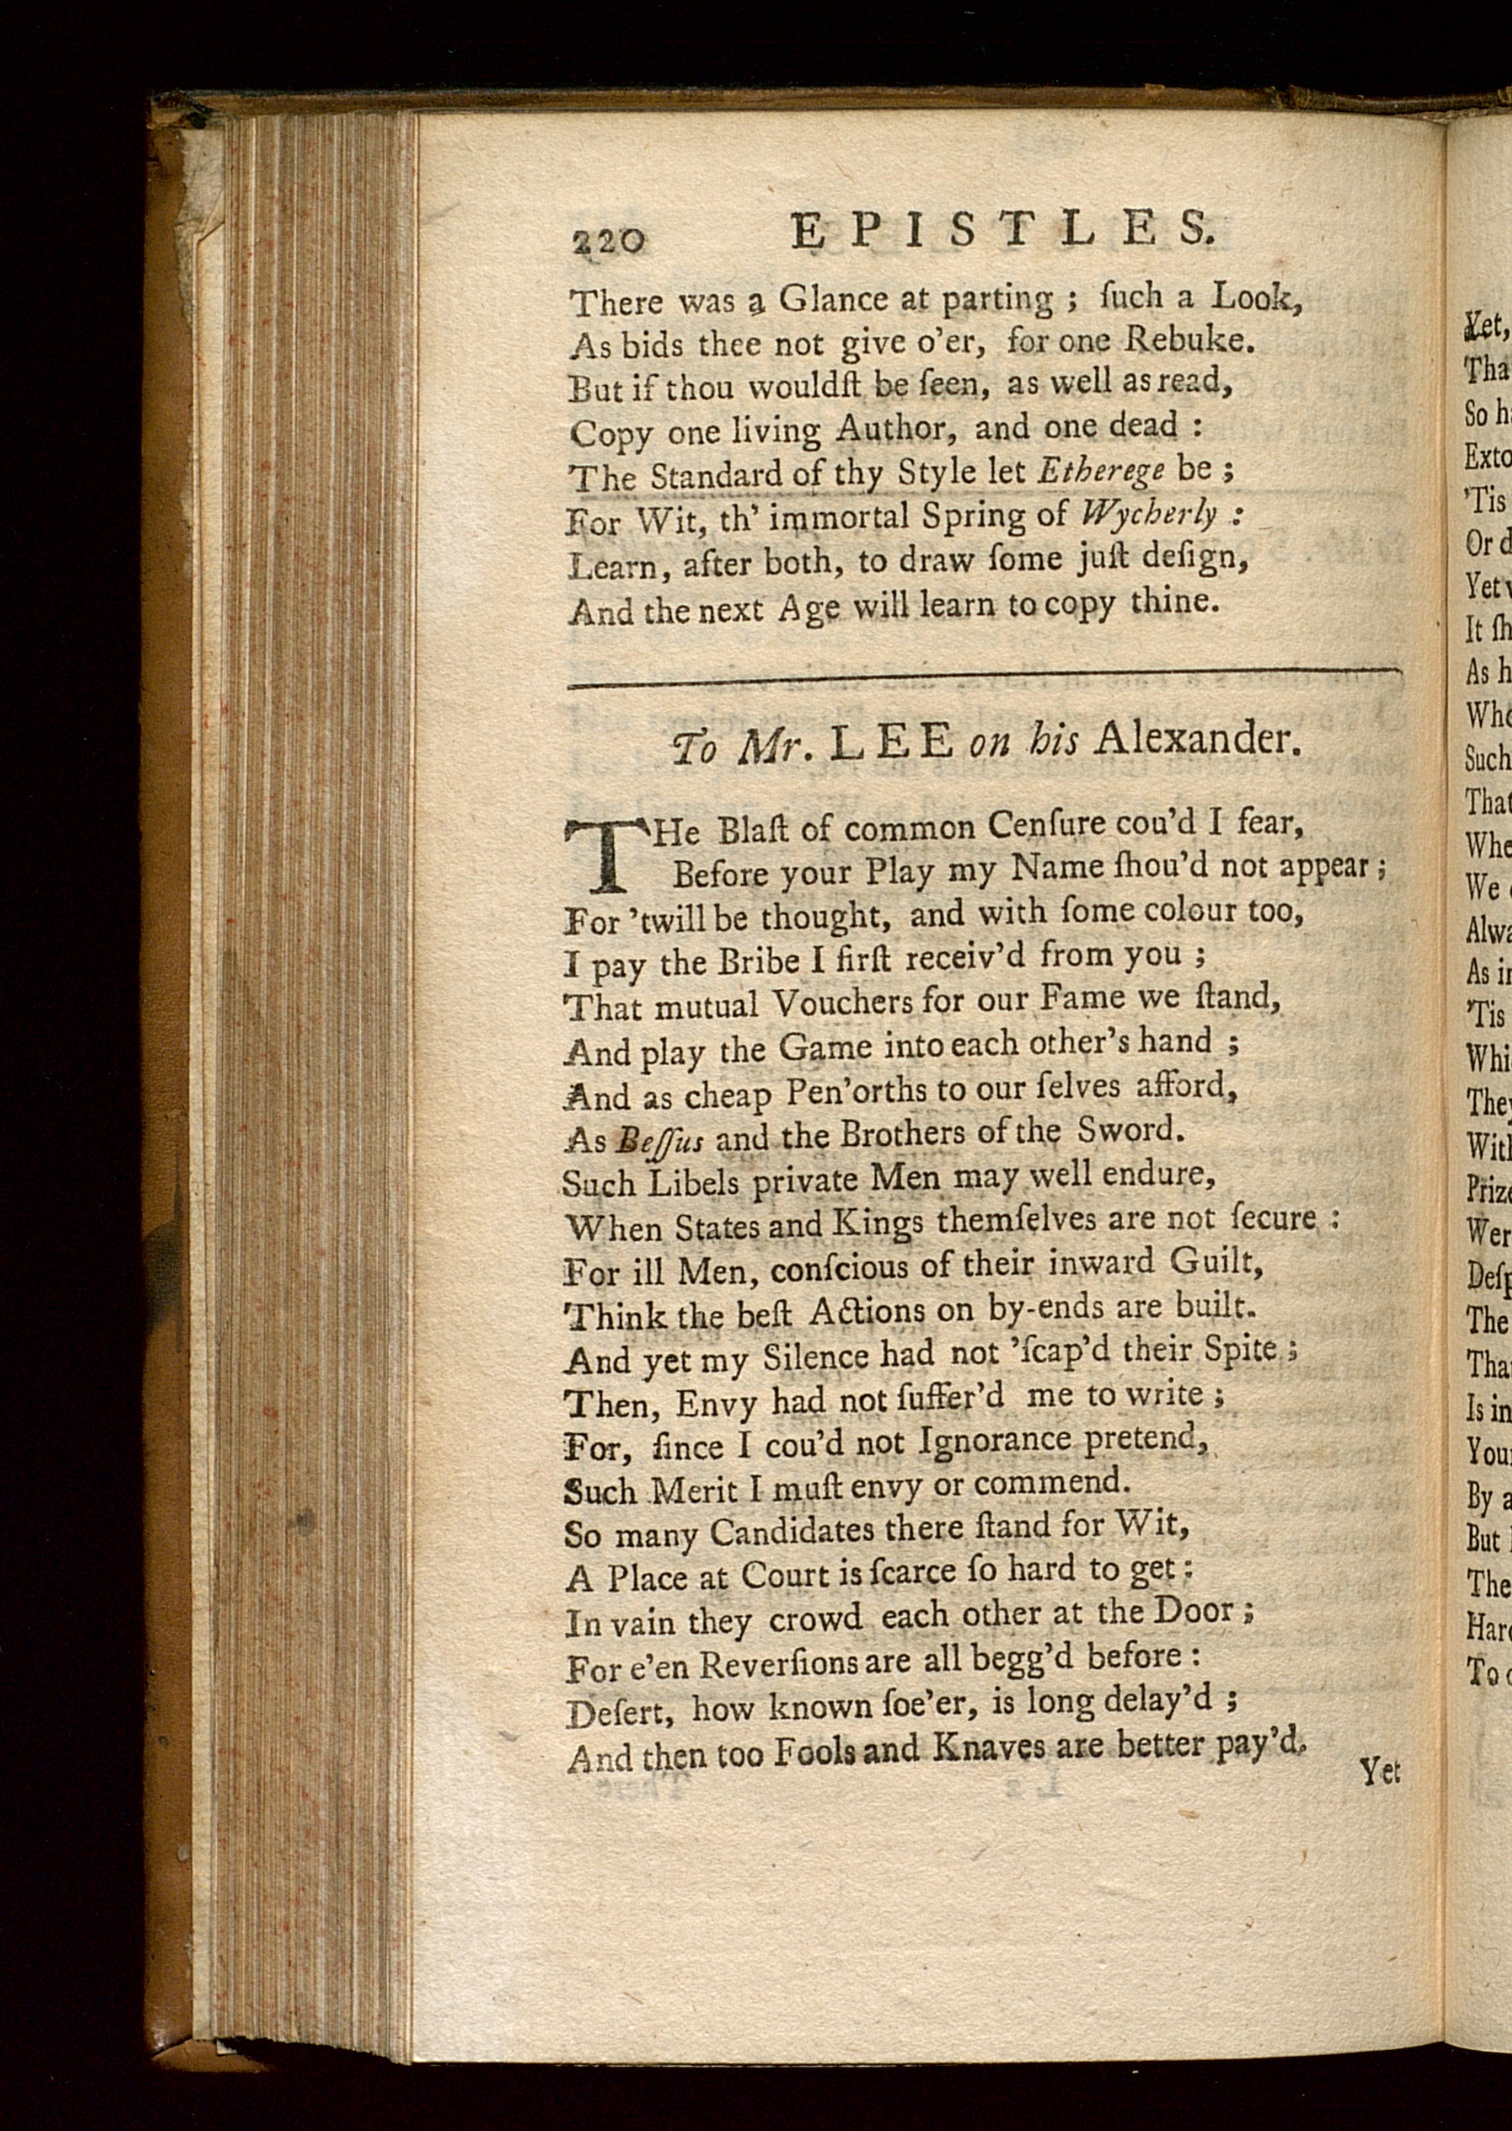 220 EPISTLES.
There was a Glance at parting ; ſuch a Look,
As bids thee not give o'er, for one Rebuke.
But if thou wouldſt be ſeen, as well as read,
Copy one living Author, and one dead :
The Standard of thy Style let Etherege be ;
For Wit, th' immortal Spring of Wycherly :
Learn, after both, to draw ſome juſt deſign,
And the next Age will learn to copy thine.
To Mr. LEE on his Alexander.
THe Blaſt of common Cenſure cou'd I fear,
Before your Play my Name ſhou'd not appear ;
For 'twill be thought, and with ſome colour too,
I pay the Bribe I firſt receiv'd from you ;
That mutual Vouchers for our Fame we ſtand,
And play the Game into each other's hand ;
And as cheap Pen'orths to our ſelves afford,
As Beſſus and the Brothers of the Sword.
Such Libels private Men may well endure,
When States and Kings themſelves are not ſecure :
For ill Men, conſcious of their inward Guilt,
Think the beſt Actions on by-ends are built.
And yet my Silence had not 'ſcap'd their Spite ;
Then, Envy had not ſuffer'd me to write ;
For, ſince I cou'd not Ignorance pretend,
Such Merit I muſt envy or commend.
So many Candidates there ſtand for Wit,
A Place at Court is ſcarce ſo hard to get :
In vain they crowd each other at the Door ;
For e'en Reverſions are all begg'd before :
Deſert, how known ſoe'er, is long delay'd ;
And then too Fools and Knaves are better pay'd.
Yet
Yet,
Tha
So h
Exto
'Tis
Or d
Yet
It ſh
As h
Who
Such
That
Whe
We
Alwa
As in
'Tis
Whi
They
With
Prize
Wer
Deſp
The
Tha
Is in
You
By a
But
The
Hard
To